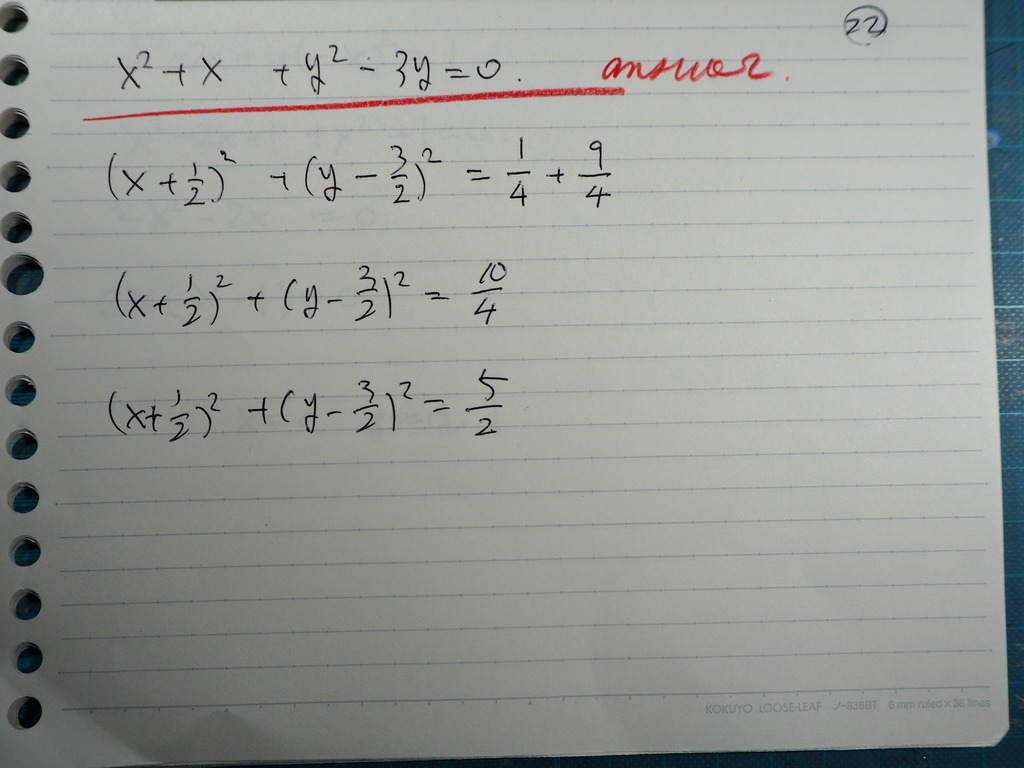 22
x² + x + y² - 3y = 0. answer.
(x + 1/2)² + (y - 3/2)² = 1/4 + 9/4
(x + 1/2)² + (y - 3/2)² = 10/4
(x + 1/2)² + (y - 3/2)² = 5/2
KOKUYO LOOSE-LEAF ノ-836BT 6 mm ruled × 36 lines